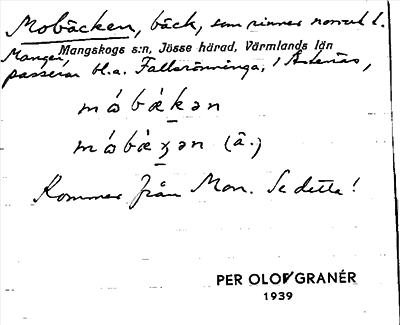 Mobäcken, bäck, som rinner norrut t.
Mangskogs s:n, Jösse härad, Värmlands län
Mangen,
passerar bl.a. Fallerönninga,
må̀bǽkən
må̀bǽʒən (ä.)
Kommer från Mon. Se detta!
PER OLOF GRANÉR
1939